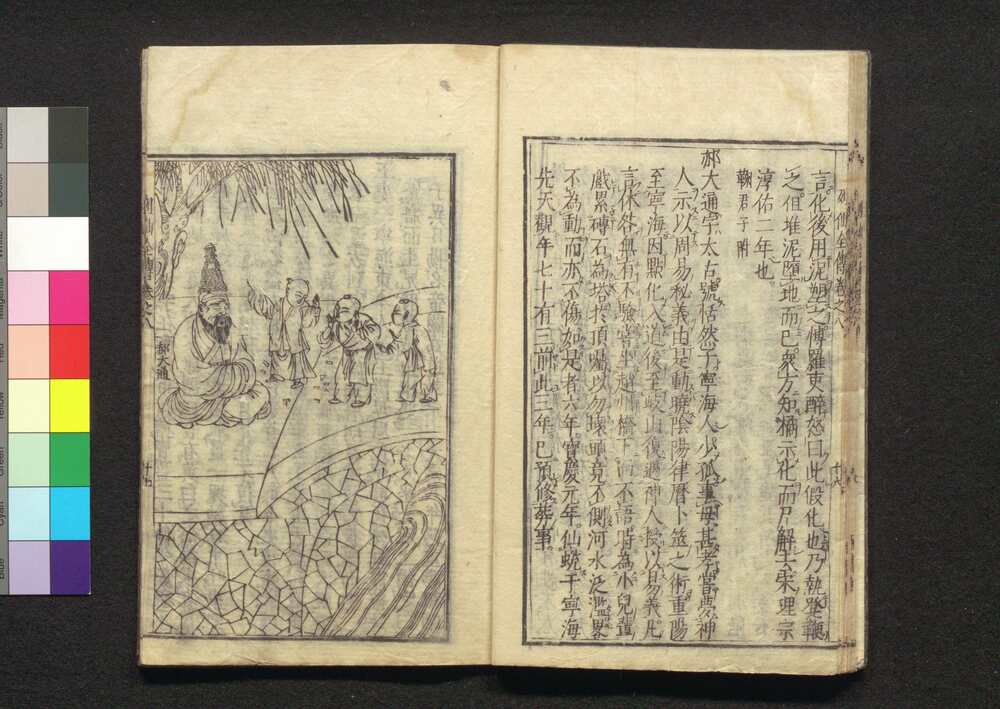 言化後用泥塑之傅羅吏醉怒曰此假化也乃執坐鞭
之但堆泥墮地而已衆方知摘示化而尸解去宋理宗
淳佑二年也
郝大通字太古號恬然子寧海人少孤事母甚孝嘗夢神
人示以周易秘義由是動曉陰陽律曆卜筮之術重陽
至寧海因點化入道後至岐山復遇神人授以易義凡
言休咎無有不驗嘗坐趙州橋下而不語時為小兒輩
戲累磚石為塔於頂囑以勿壞頭竟不側河水泛濫畧
不為動而亦不傷如是者六年寶慶元年仙蛻于寧海
先天觀年七十有三前此三年已預修葬事
郝大通
Magenta
Red
Yellow
Green
Cyan
Blue
White